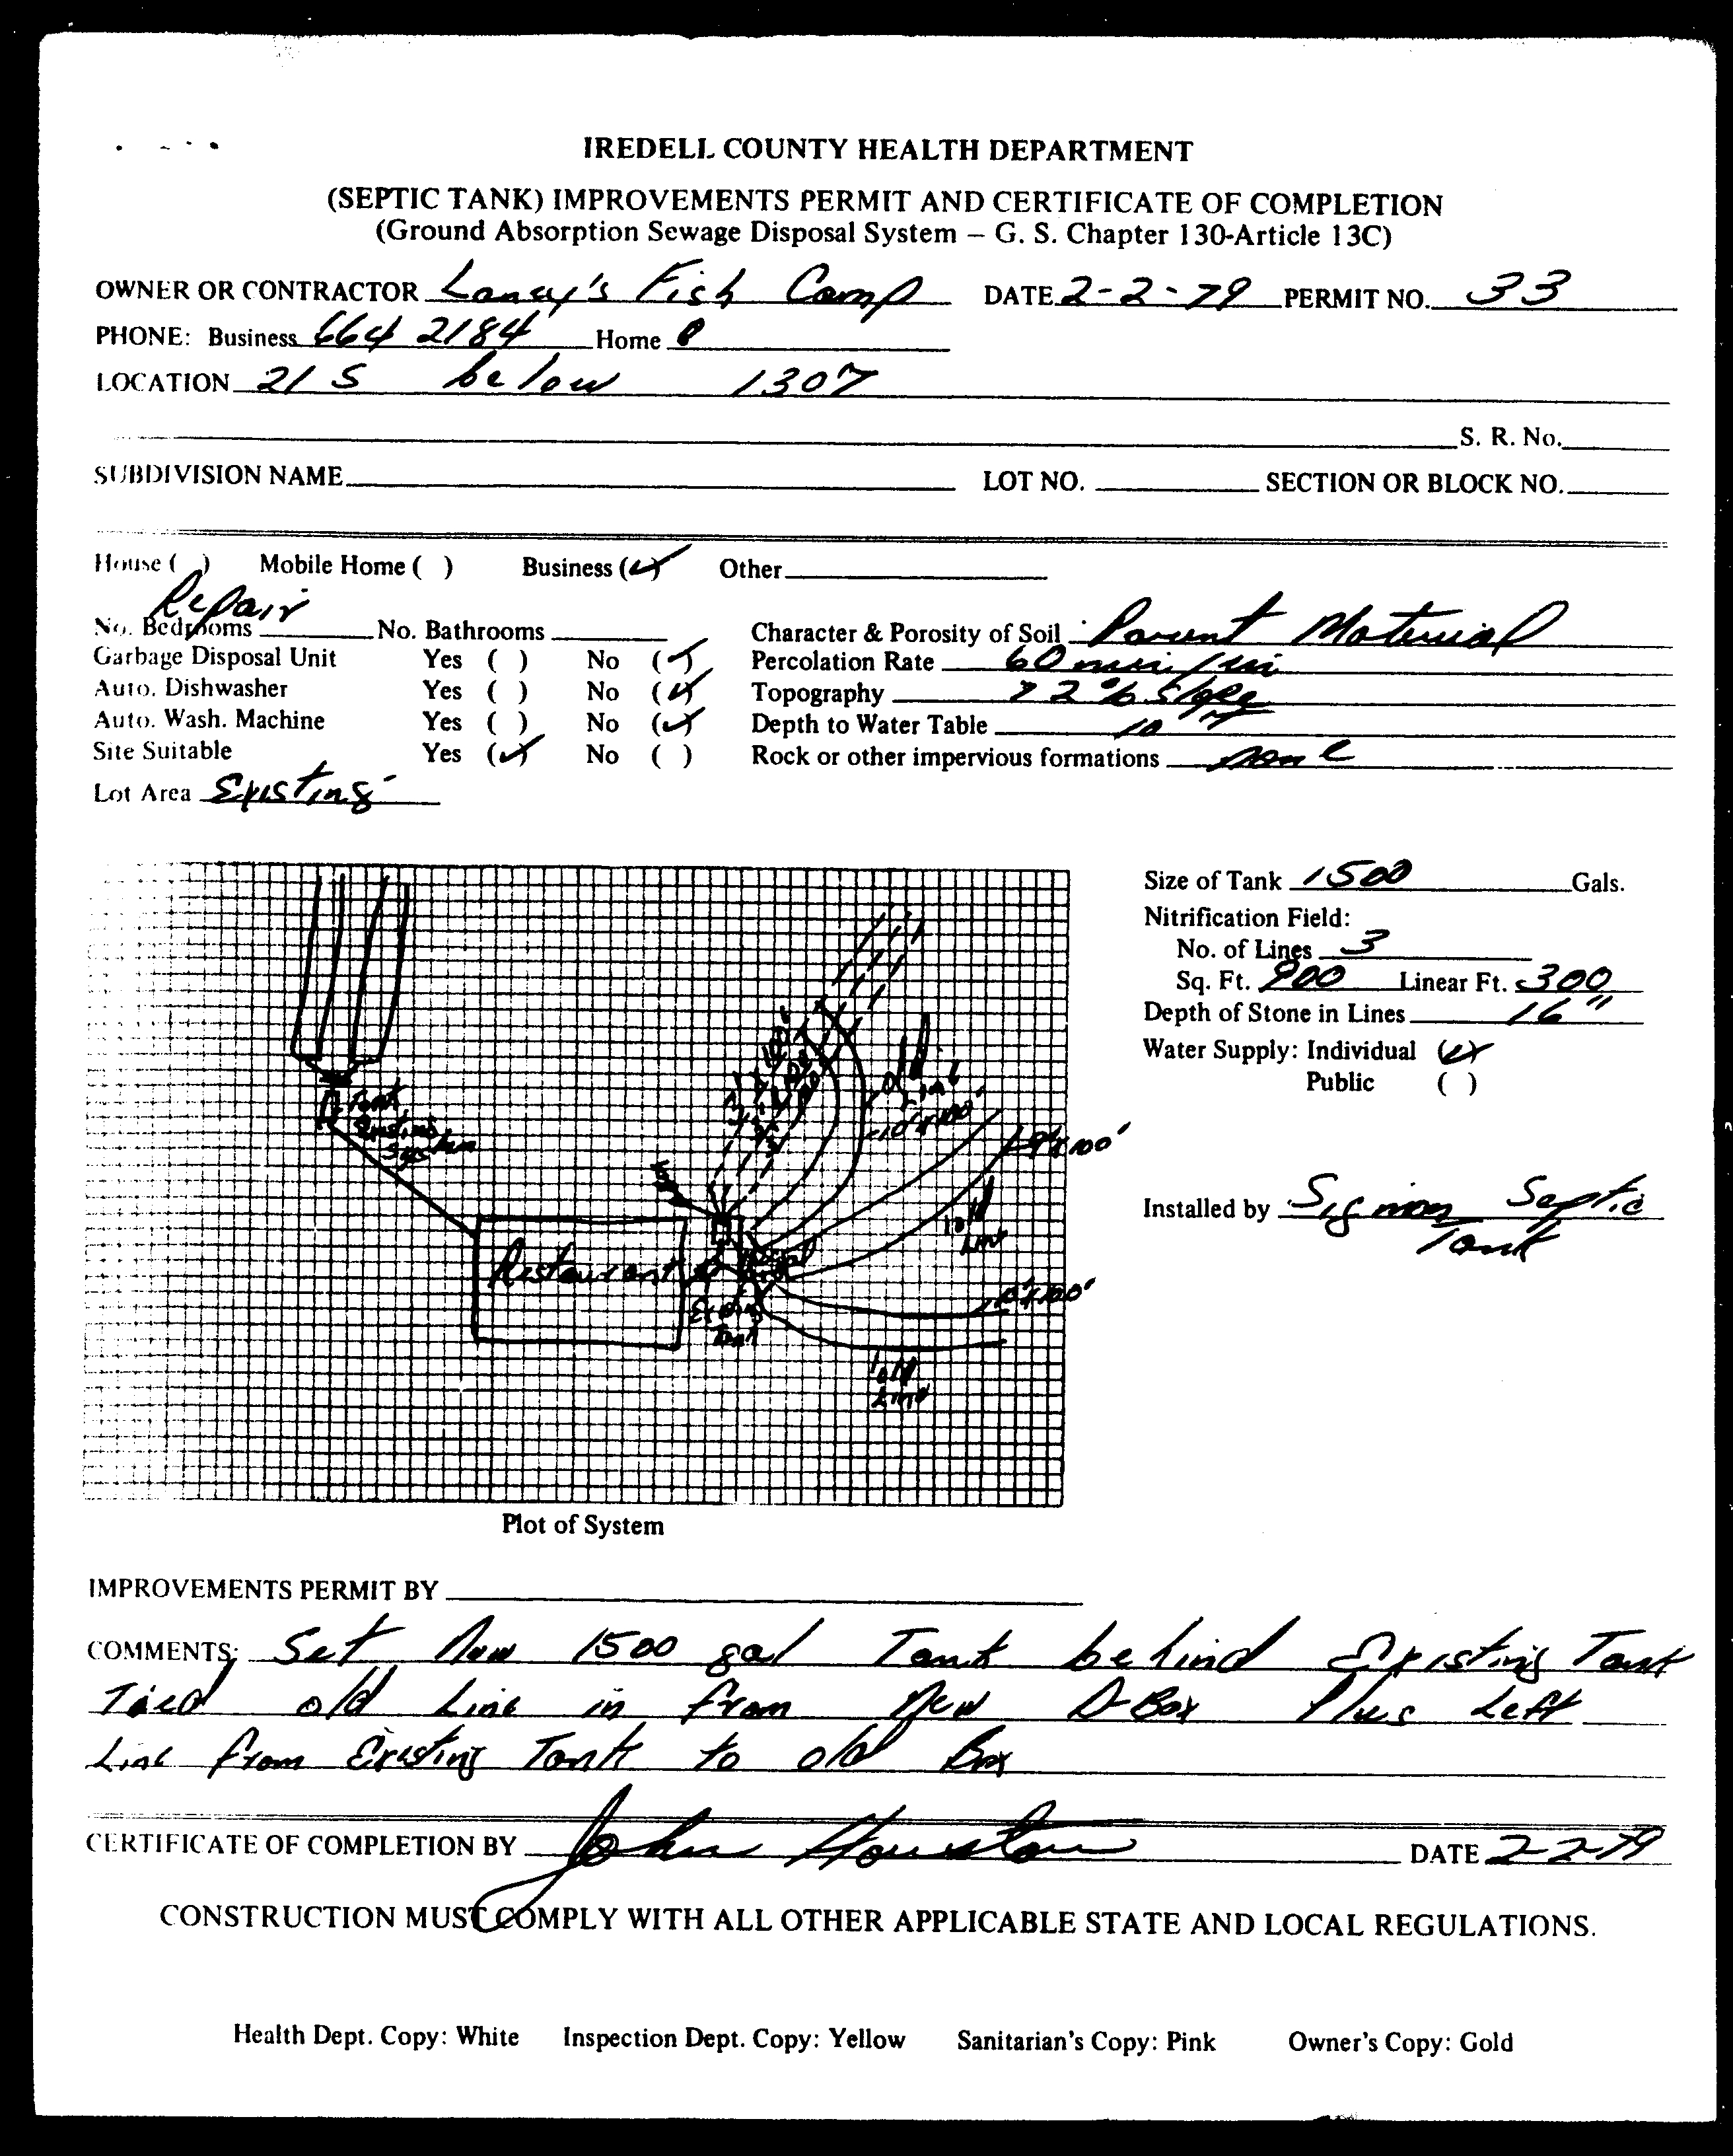 IREDELL COUNTY HEALTH DEPARTMENT
(SEPTIC TANK) IMPROVEMENTS PERMIT AND CERTIFICATE OF COMPLETION
(Ground Absorption Sewage Disposal System – G. S. Chapter 130-Article 13C)
OWNER OR CONTRACTOR Laney's Fish Camp DATE 2-2-79 PERMIT NO. 33
PHONE: Business 664 2184 Home
LOCATION 21 S below 1307
S. R. No.
SUBDIVISION NAME LOT NO. SECTION OR BLOCK NO.
House ( ) Mobile Home ( ) Business (✓) Other
Repair
No. Bedrooms No. Bathrooms Character & Porosity of Soil Parent Material
Garbage Disposal Unit Yes ( ) No (✓) Percolation Rate 60 min/in
Auto. Dishwasher Yes ( ) No (✓) Topography > 2 % slope
Auto. Wash. Machine Yes ( ) No (✓) Depth to Water Table 10
Site Suitable Yes (✓) No ( ) Rock or other impervious formations none
Lot Area Existing
Size of Tank 1500 Gals.
Nitrification Field:
No. of Lines 3
Sq. Ft. 900 Linear Ft. 300
Depth of Stone in Lines 16"
Water Supply: Individual (✓)
Public ( )
Installed by Sigmon Septic
Tank
Tank
Existing
System
old
Line
old
Line
Restaurant
Existing
Tank
old
Line
Plot of System
IMPROVEMENTS PERMIT BY
COMMENTS: Set New 1500 gal Tank behind Existing Tank
Tied old Line in from New D-Box Plus Left
Line from Existing Tank to old Box
CERTIFICATE OF COMPLETION BY John Houston DATE 2-2-79
CONSTRUCTION MUST COMPLY WITH ALL OTHER APPLICABLE STATE AND LOCAL REGULATIONS.
Health Dept. Copy: White Inspection Dept. Copy: Yellow Sanitarian's Copy: Pink Owner's Copy: Gold